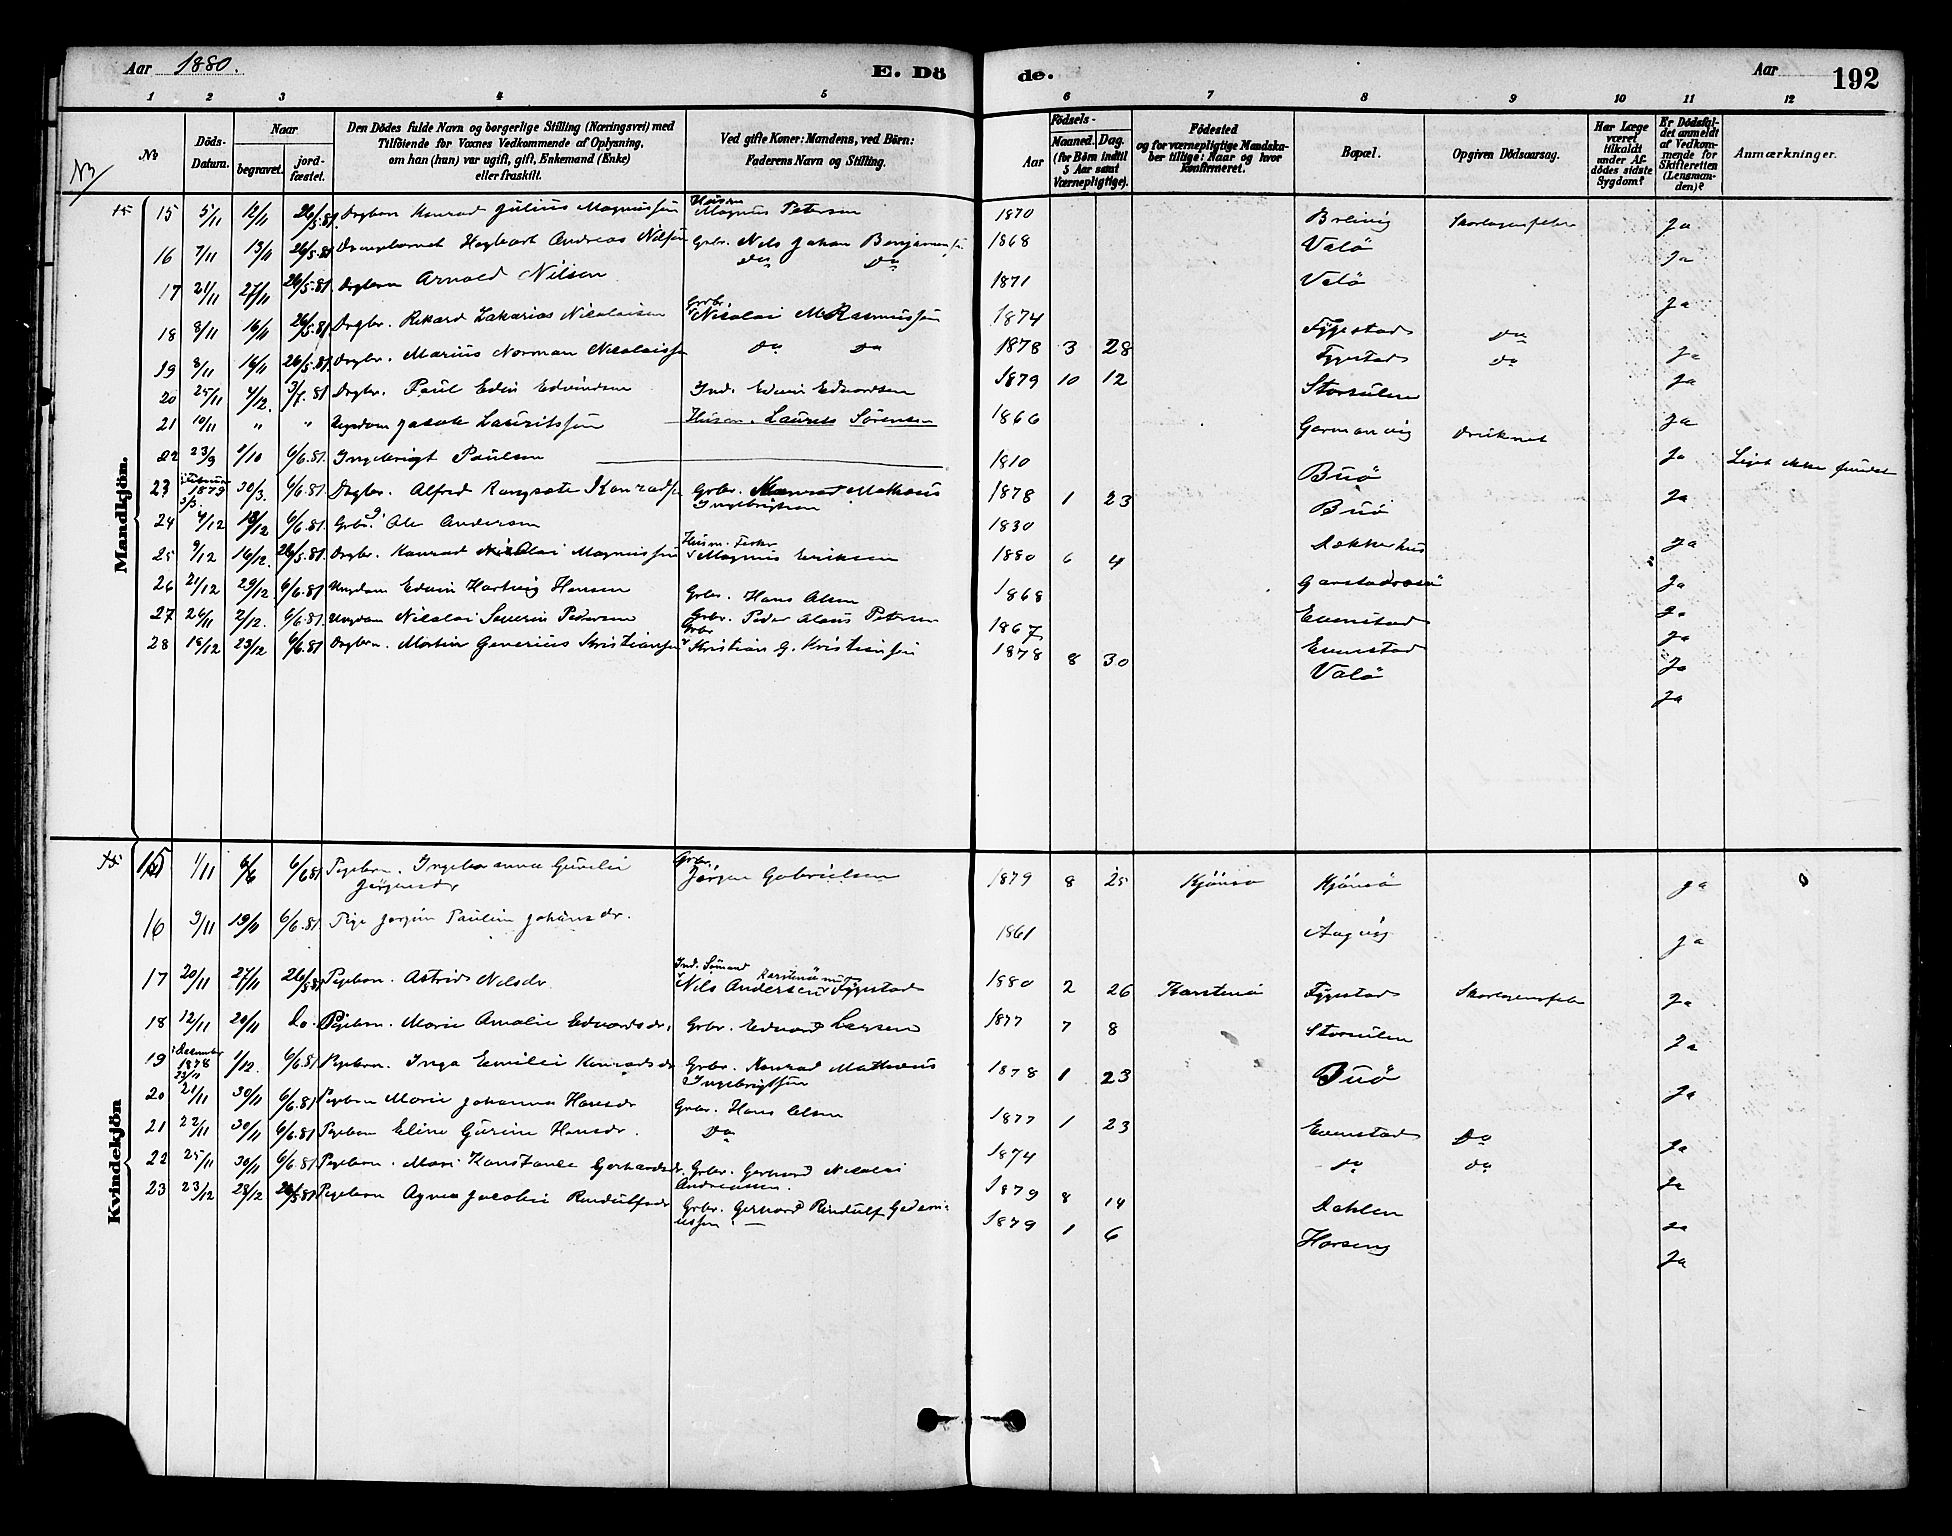 Aar 1880. E. Dö de. Aar 192
1 2 3 4 5 6 7 8 9 10 11 12
No
Döds-Datum.
Naar begravet. jordfæstet.
Den Dödes fulde Navn og borgerlige Stilling (Næringsvei) med Tilföiende for Voxnes Vedkommende af Oplysning, om han (hun) var ugift, gift, Enkemand (Enke) eller fraskilt.
Ved gifte Koner: Mandens, ved Börn: Faderens Navn og Stilling.
Födsels- Aar Maaned. Dag. (for Börn indtil 5 Aar samt Værnepligtige).
Födested og for værnepligtige Mandskaber tillige: Naar og hvor Konfirmeret.
Bopæl.
Opgiven Dödsaarsag.
Har Læge været tilkaldt under Afdödes sidste Sygdom?
Er Dödsfaldet anmeldt af Vedkommende for Skifteretten (Lensmanden)?
Anmærkninger.
Mandkjön.
15 5/11 12/11 26/5.81 Drgbarn Konrad Julius Magnussen Husm Magnus Petersen 1870 Breivig Skarlagensfeber Ja
16 7/11 13/11 26/5.81 Hagbart Andreas Nilsen Grbr. Nils Johan Benjaminsen 1868 Valö Ja
17 21/11 27/11 26/5.81 Drgbarn Arnold Nilsen do do 1871 Valö Ja
18 8/11 16/11 26/5.81 Drgbr. Rikard Zakarias Nicolaisen Grbr. Nicolai M Rasmussen 1874 Fygestad do Ja
19 8/11 16/11 26/5.81 Drgbr. Marius Norman Nicolaissen do do 1878 3 28 Fygestad do Ja
20 25/11 4/12. 3/7.81 Drgbr. Paul Edin Edvindsen Ind. Edvin Edvardsen 1879 10 12 Storsulen Ja
21 10/11 " " Ungdom Jakob Lauritssen Husm. Laurits Sörensen 1866 Gormanvig druknet Ja Liget ikke fundet
22 23/9 2/10 6/6.81. Ingebrigt Paulsen 1810 Buö Ja
23 1879 3/3. 30/3. 6/6.81. Drgbr. Alfred Konradsen Grbr. Konrad Matheus Ingebrigtsen 1878 1 23 Buö Ja
24 4/12 18/12 6/6.81. Grbr. Ole Andersen 1830 Bakkerhus Ja
25 9/12 16/12. 26/5.81. Drgbr. Konrad Nicolai Magnussen Husm. Magnus Eriksen 1880 6 4 Ja
26 21/12 29/12 6/6.81 Ungdom Edvin Hartvig Hansen Grbr. Hans Olsen 1868 Evenstad Ja
27 26/11 2/12. 6/6.81. Ungdom Nicolai Severin Pedersen Grbr. Peder Claus Petersen 1867 Evenstad Ja
28 18/12 23/12 6/6.81 Drgbrn. Martin Generius Kristiansen Grbr Kristian G. Kristiansen 1878 8 30 Valö Ja
Kvindekjön
15 1/11 6/6 6/6 81 Pigebarn. Ingeboranna Gurelie Jörgensdr Grbr. Jörgen Gabrielsen 1879 8 25 Kjönsö Kjönsö Ja
16 9/11 19/11 6/6.81. Pige Jörgine Pauline Johansdr. 1861 Aagvig Ja
17 20/11 27/11 26/5 81 Pigebarn. Astrid Nilsdr Ind. Sömand Nils Andersen Fygestad 1880 2 26 Karstenö Fygestad Skarlagensfeber Ja
18 12/11 20/11 Do. Pigebarn. Marie Amalie Edvardsdr. Grbr. Edvard Larsen 1877 7 8 Storsulen Ja
19 December 1878 1/12. 6/6.81 Pigebarn. Inga Emilie Konradsdr Grbr. Konrad Matheus Ingebrigtsen 1878 1 23 Buö Ja
20 21/11 30/11 6/6.81 Pigebarn Marie Johanna Hansdr Grbr. Hans Olsen 1877 1 23 Evenstad Do Ja
21 22/11 30/11 6/6.81 Pigebarn Eline Gurine Hansdr. Do 1874 do do Ja
22 25/11 30/11 6/6.81 Pigebarn. Mari Konstance Gerhardsdr. Grbr. Gerhard Nicolai Andreassen. 1879 8 14 Dahlen Ja
23 23/12 28/12 26/5 81 Pigebarn Agnes Jacobie Rindulfsdr Grbr. Gerhard Rindulf 1879 1 6 Horseng Ja